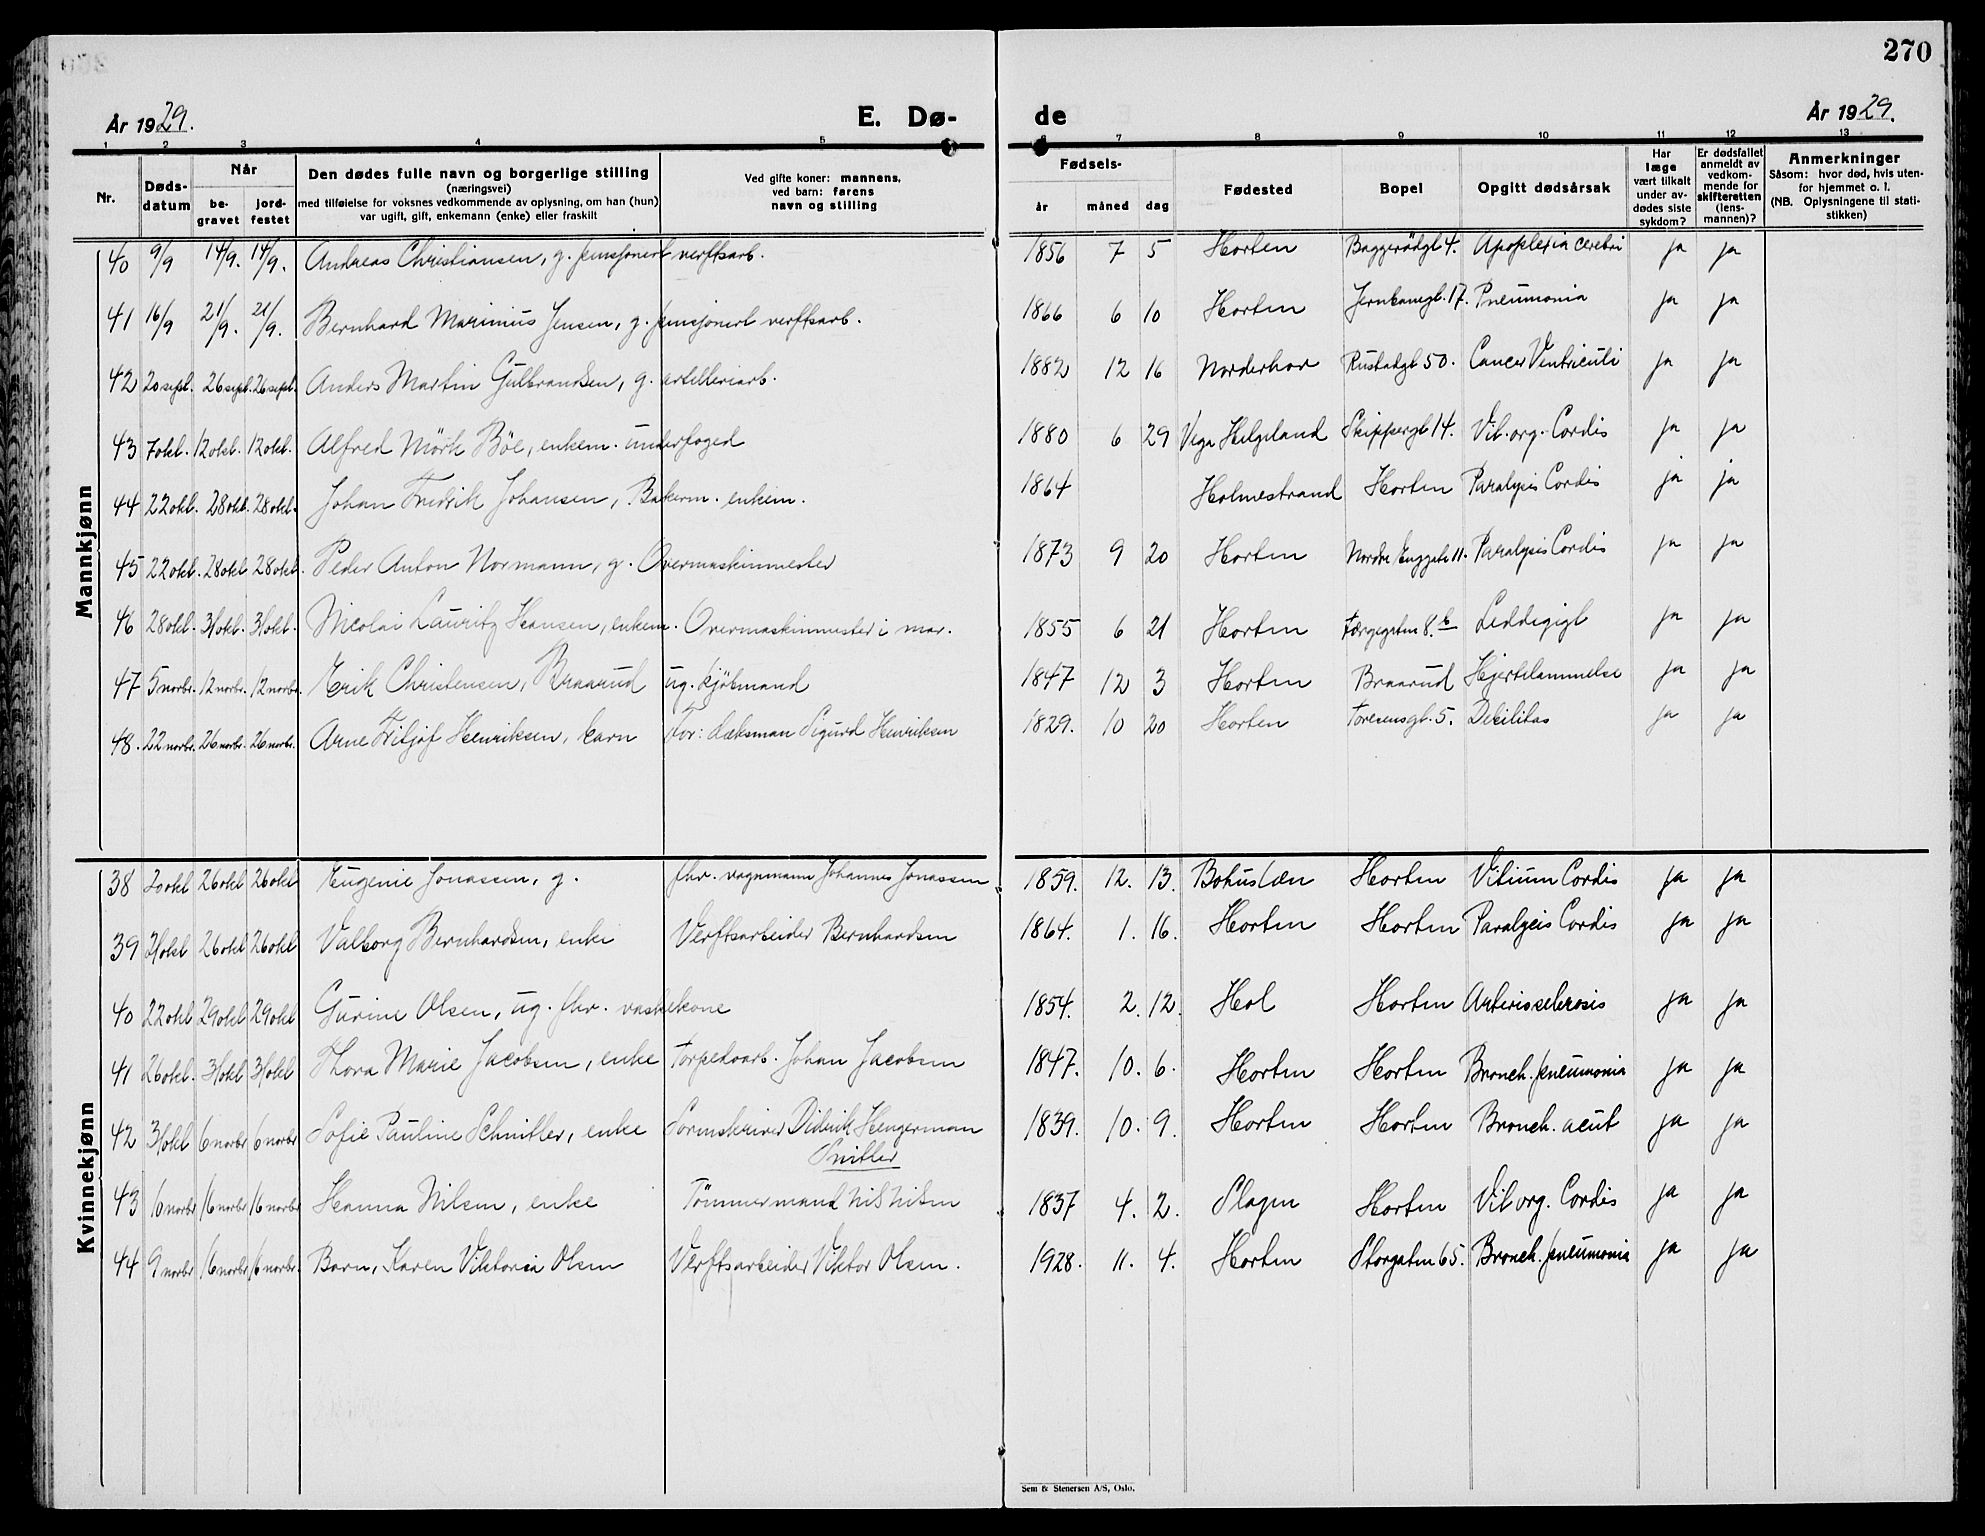 270
År 1929. E. Dø- de År 1929.
1 2 3 4 5 6 7 8 9 10 11 12 13
Nr. Døds-datum Når be-gravet jord-festet Den dødes fulle navn og borgerlige stilling (næringsvei) med tilføielse for voksnes vedkommende av oplysning, om han (hun) var ugift, gift, enkemann (enke) eller fraskilt Ved gifte koner: mannens, ved barn: farens navn og stilling Fødsels- år måned dag Fødested Bopel Opgitt dødsårsak Har læge vært tilkalt under av-dødes siste sykdom? Er dødsfallet anmeldt av vedkom-mende for skifteretten (lens-mannen)? Anmerkninger Såsom: hvor død, hvis uten-for hjemmet o. l. (NB. Oplysningene til stati-stikken)
Mannkjønn
40 9/9 14/9. 14/9. Andreas Christiansen, g. pensjonert verftsarb. 1856 7 5 Horten Baggerødgt 4. Apoplexia cerebri ja ja
41 16/9 21/9. 21/9. Bernhard Marinius Jensen, g. pensjonert verftsarb. 1866 6 10 Horten Jernbanegt. 17. Pneumonia ja ja
42 20 sept. 26 sept. 26 sept. Anders Martin Gulbrandsen, g. artilleriarb. 1882 12 16 Norderhov Rustadgt 50. Cancer Ventriculi ja ja
43 7 okt. 12 okt. 12 okt. Alfred Mörk Böe, enkem. underfoged 1880 6 29 Vega Helgeland Skippergt 14. Vit. org. Cordis ja ja
44 22 okt. 28 okt. 28 okt. Johan Fredrik Johansen, Bakerm. enkem. 1864 Holmestrand Horten Paralysis Cordis ja ja
45 22 okt. 28 okt 28 okt. Peder Anton Normann, g. Overmaskinmester 1873 9 20 Horten Nordre Enggate 11. Paralysis Cordis ja ja
46 28 okt. 31 okt. 31 okt. Nicolai Lauritz Hansen, enkem. Overmaskinmester i mar. 1855 6 21 Horten Færgegaten 8.b Leddegigt ja ja
47 5 novbr. 12 novbr. 12 novbr. Erik Christensen, Braarud ug. kjöbmand 1847 12 3 Horten Braarud Hjertelammelse ja ja
48. 22 novbr. 26 novbr. 26 novbr. Arne Fritjof Henriksen, barn For: Læksman Sigurd Henriksen 1829. 10 20 Horten Toresensgt. 5. Debilitas ja ja
Kvinnekjønn
38 20 okt 26 okt 26 okt Eugenie Jonassen, g. fhv. vognmann Johannes Jonassen 1859. 12. 13. Bohuslæn Horten Vitium Cordis ja ja
39 21 okt 26 okt 26 okt Valborg Bernhardsen, enke Verftsarbeider Bernhardsen 1864. 1. 16. Horten Horten Paralysis Cordis ja ja
40 22 okt 29 okt 29 okt Gurine Olsen, ug. fhv. vaskekone 1854. 2. 12. Hol Horten Arteriosclerosis ja ja
41 26 okt. 31 okt 31 okt Thora Marie Jacobsen, enke Torpedoarb. Johan Jacobsen 1847. 10. 6. Horten Horten Bronch. pneumonia ja ja
42 31 okt 6 novbr 6 novbr Sofie Pauline Schnitler, enke Sorenskriver Didrik Hengerman
Snitler 1839. 10. 9. Horten Horten Bronch. acut ja ja
43 10 novbr 16 novbr 16 novbr Hanna Nilsen, enke Tömmermand Nils Nilsen 1837 4. 2. Slagen Horten Vit org. Cordis ja ja
44 9 novbr 16 novbr 16 novbr. Barn, Karen Viktoria Olsen Verftsarbeider Viktor Olsen. 1928. 11. 4. Horten Storgaten 65. Bronch. pneumonia ja ja
Sem & Stenersen A/S, Oslo.